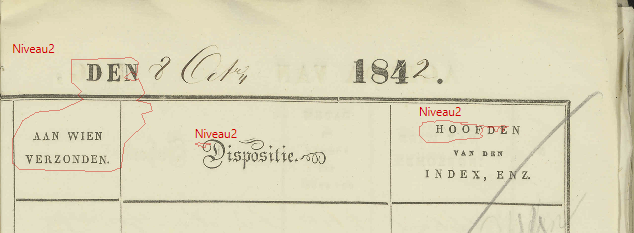 Niveau2
DEN 8 Octr 1842.
Niveau2
AAN WIEN
VERZONDEN.
Niveau2
Dispositie.
Niveau2
HOOFDEN
VAN DEN
INDEX, ENZ.